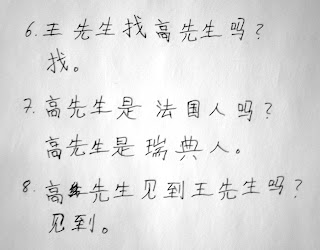 6. 王先生找高先生吗?
找。
7. 高先生是法国人吗?
高先生是瑞典人。
8. 高先生见到王先生吗?
见到。